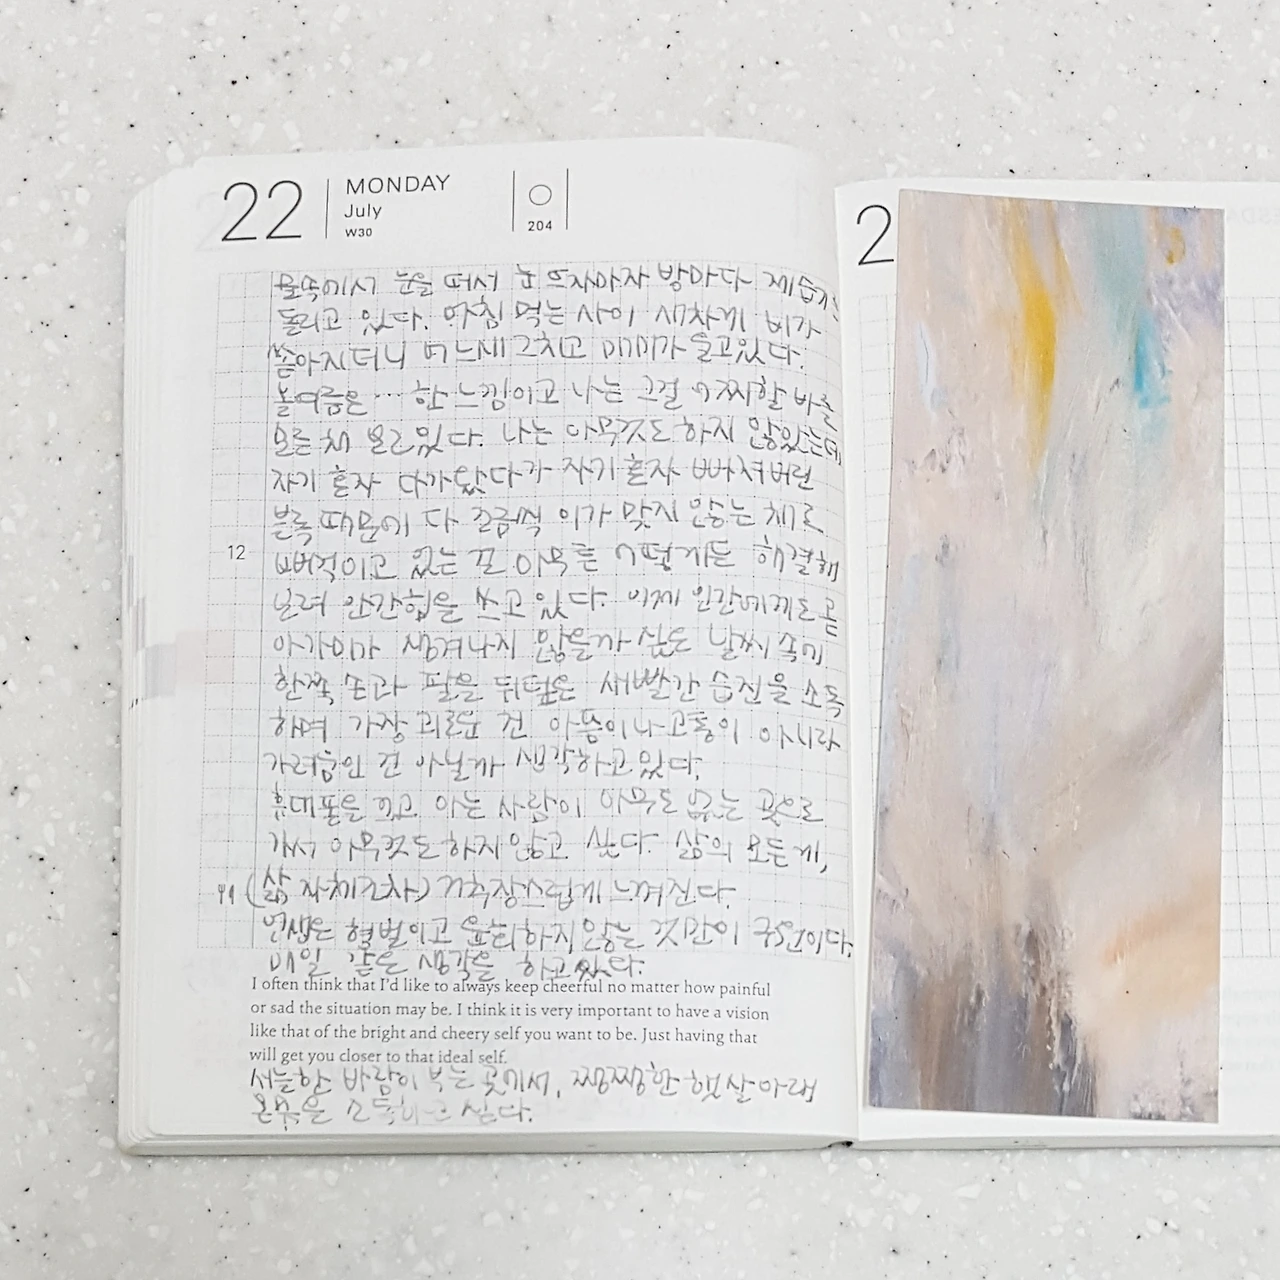 22
MONDAY
July
W30
204
물속에서 눈을 떠서 눈 뜨자마자 방마다 제습기
돌리고 있다. 아침 먹는 사이 세차게 비가
쏟아지더니 어느새 그치고 매미가 울고있다.
올여름은 ... 한 느낌이고 나는 그걸 어찌할 바를
모른 채 몰리있다. 나는 아무것도 하지 않았는데
자기 혼자 다가왔다가 자기 혼자 빠져버린
블록 때문에 다 조금씩 이가 맞지 않는 채로
삐걱이고 있는 꼴 아무튼 어떻게든 해결해
보려 안간힘을 쓰고 있다. 이제 인간에게도 곧
12
아가미가 생겨나지 않을까 싶은 날씨 속에
한쪽 손과 팔을 뒤덮은 새빨간 습진을 소독
하며 가장 괴로운 건 아픔이나 고통이 아니라
가려움인 건 아닐까 생각하고 있다.
휴대폰을 끄고 아는 사람이 아무도 없는 곳으로
가서 아무것도 하지 않고 싶다. 삶의 모든 게,
(삶 자체조차) 거추장스럽게 느껴진다.
연생은 형벌이고 윤회하지 않는 것만이 구원이다.
매일 같은 생각을 하고 있다.
I often think that I'd like to always keep cheerful no matter how painful
or sad the situation may be. I think it is very important to have a vision
like that of the bright and cheery self you want to be. Just having that
will get you closer to that ideal self.
서늘한 바람이 부는 곳에서, 쨍쨍한 햇살 아래
온몸을 소독하고 싶다.
2